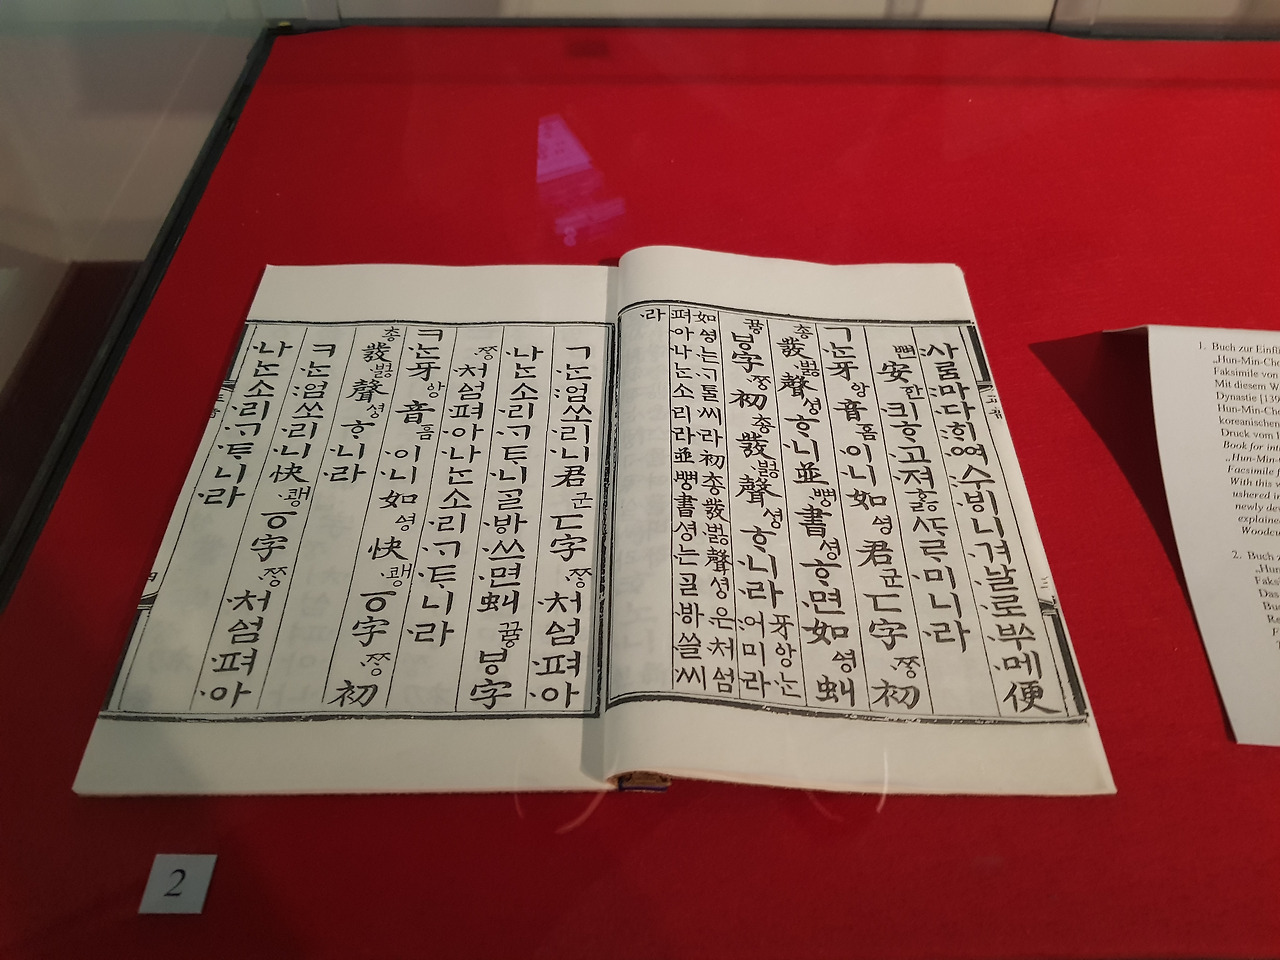 사ᄅᆞᆷ마다ᄒᆡᅇᅧ수ᄫᅵ니겨날로ᄡᅮ메便
뼌安ᅙᅡᆫ킈ᄒᆞ고져ᄒᆞᇙᄯᆞᄅᆞ미니라
ㄱᄂᆞᆫ牙ᅌᅡᆼ音ᅙᅳᆷ이니如ᅀᅧᆼ君군ㄷ字ᄍᆞᆼ初
총發벓聲셩ᄒᆞ니並뼝書셩ᄒᆞ면如ᅀᅧᆼ虯
뀨ᇢㅸ字ᄍᆞᆼ初총發벓聲셩ᄒᆞ니라牙ᅌᅡᆼᄂᆞᆫ
어미라
如ᅀᅧᆼᄂᆞᆫᄀᆞᄐᆞᆯ씨라初총發벓聲셩은처ᅀᅥᆷ
펴아나ᄂᆞᆫ소리라並뼝書셩ᄂᆞᆫᄀᆞᆯᄫᅡ쓸씨
라
ㄱᄂᆞᆫ엄쏘리니君군ㄷ字ᄍᆞᆼ처ᅀᅥᆷ펴아
나ᄂᆞᆫ소리ᄀᆞᄐᆞ니ᄀᆞᆯᄫᅡ쓰면虯뀨ᇢㅸ字
ᄍᆞᆼ처ᅀᅥᆷ펴아나ᄂᆞᆫ소리ᄀᆞᄐᆞ니라
ㅋᄂᆞᆫ牙ᅌᅡᆼ音ᅙᅳᆷ이니如ᅀᅧᆼ快쾡ㆆ字ᄍᆞᆼ初
총發벓聲셩ᄒᆞ니라
ㅋᄂᆞᆫ엄쏘리니快쾡ㆆ字ᄍᆞᆼ처ᅀᅥᆷ펴아
나ᄂᆞᆫ소리ᄀᆞᄐᆞ니라
2
1. Buch zur
„Hun-Min-
Faksimile von
Mit diesem
Dynastie
Hun-Min-
koreanischen
Druck vom
Book for
„Hun-Min-
Facsimile
With this
ushered
newly
2. Buch